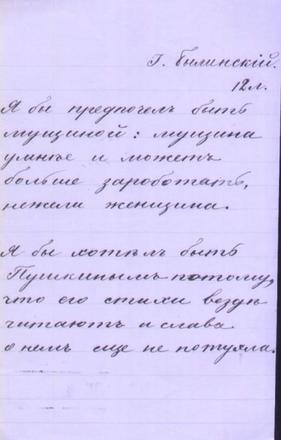 Г. Былинскій.
12 л.
Я бы предпочелъ быть
мущиной: мущина
умнѣе и можетъ
больше зароботать,
нежели женщина.
Я бы хотѣлъ быть
Пушкинымъ потому,
что его стихи вездѣ
читаютъ и слава
о немъ еще не потухла.